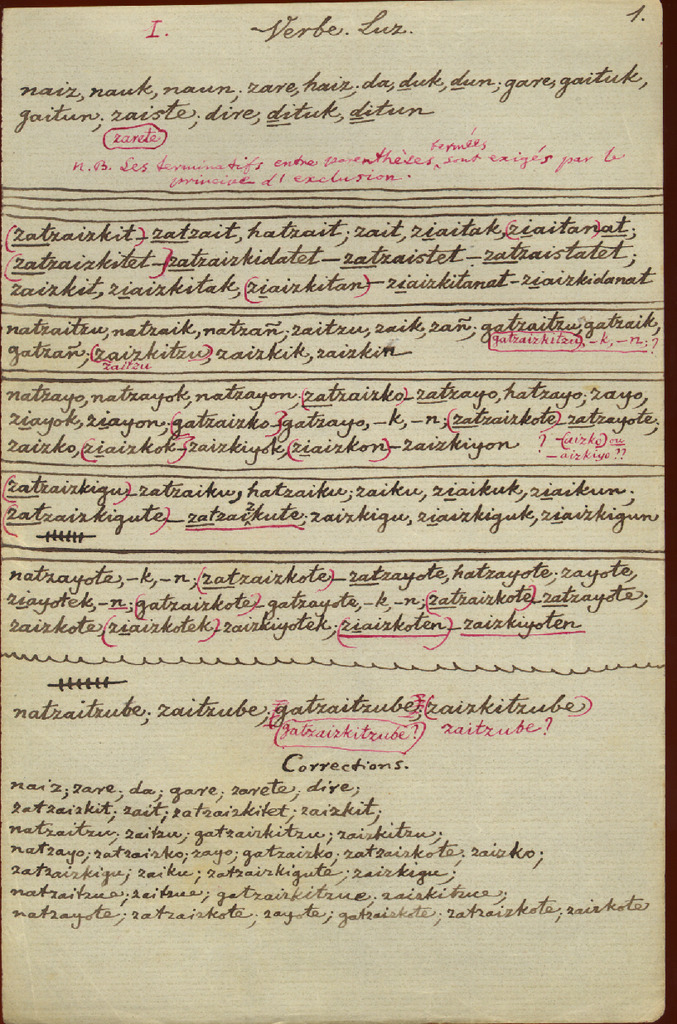 I. Verbe. Luz. 1.
naiz, nauk, naun; zare, haiz; da, duk, dun; gare, gaituk,
gaitun; zaiste; dire, dituk, ditun
zarete
N.B. Les terminatifs entre parenthèses fermées, sont exigés par le
principe d'exclusion.
(zatzaizkit) - zatzait, hatzait; zait, ziaitak, (ziaitan)at;
(zatzaizkitet - )zatzaizkidatet - zatzaistet - zatzaistatet;
zaizkit, ziaizkitak, (ziaizkitan) - ziaizkitanat - ziaizkidanat
natzaitzu, natzaik, natzañ; zaitzu, zaik, zañ; gatzaitzu, gatzaik,
(gatzaizkitzu), -k, -n; ?
gatzañ; (zaizkitzu), zaizkik, zaizkin
zaitzu
natzayo, natzayok, natzayon; (zatzaizko) - zatzayo, hatzayo; zayo,
ziayok, ziayon; (gatzaizko) gatzayo, -k, -n; (zatzaizkote) - zatzayote;
zaizko, (ziaizkok - ) zaizkiyok, (ziaizkon) - zaizkiyon ? - (aizko) ou
- aizkiyo??
(zatzaizkigu) - zatzaiku, hatzaiku; zaiku, ziaikuk, ziaikun;
(zatzaizkigute) - zatzaikute; zaizkigu, ziaizkiguk, ziaizkigun
natzayote, -k, -n; (zatzaizkote) - zatzayote, hatzayote; zayote,
ziayotek, -n; (gatzaizkote) - gatzayote, -k, -n; (zatzaizkote) - zatzayote;
zaizkote, (ziaizkotek) - zaizkiyotek, (ziaizkoten) - zaizkiyoten
natzaitzube; zaitzube; gatzaitzube; (zaizkitzube)
(gatzaizkitzube?) zaitzube?
Corrections.
naiz; zare; da; gare; zarete; dire;
zatzaizkit; zait; zatzaizkitet; zaizkit;
natzaitzu; zaitzu; gatzaizkitzu; zaizkitzu;
natzayo; zatzaizko; zayo; gatzaizko; zatzaizkote; zaizko;
zatzaizkigu; zaiku; zatzaizkigute; zaizkigu;
natzaitzue; zaitzue; gatzaizkitzue; zaizkitzue;
natzayote; zatzaizkote; zayote; gatzaizkote; zatzaizkote; zaizkote